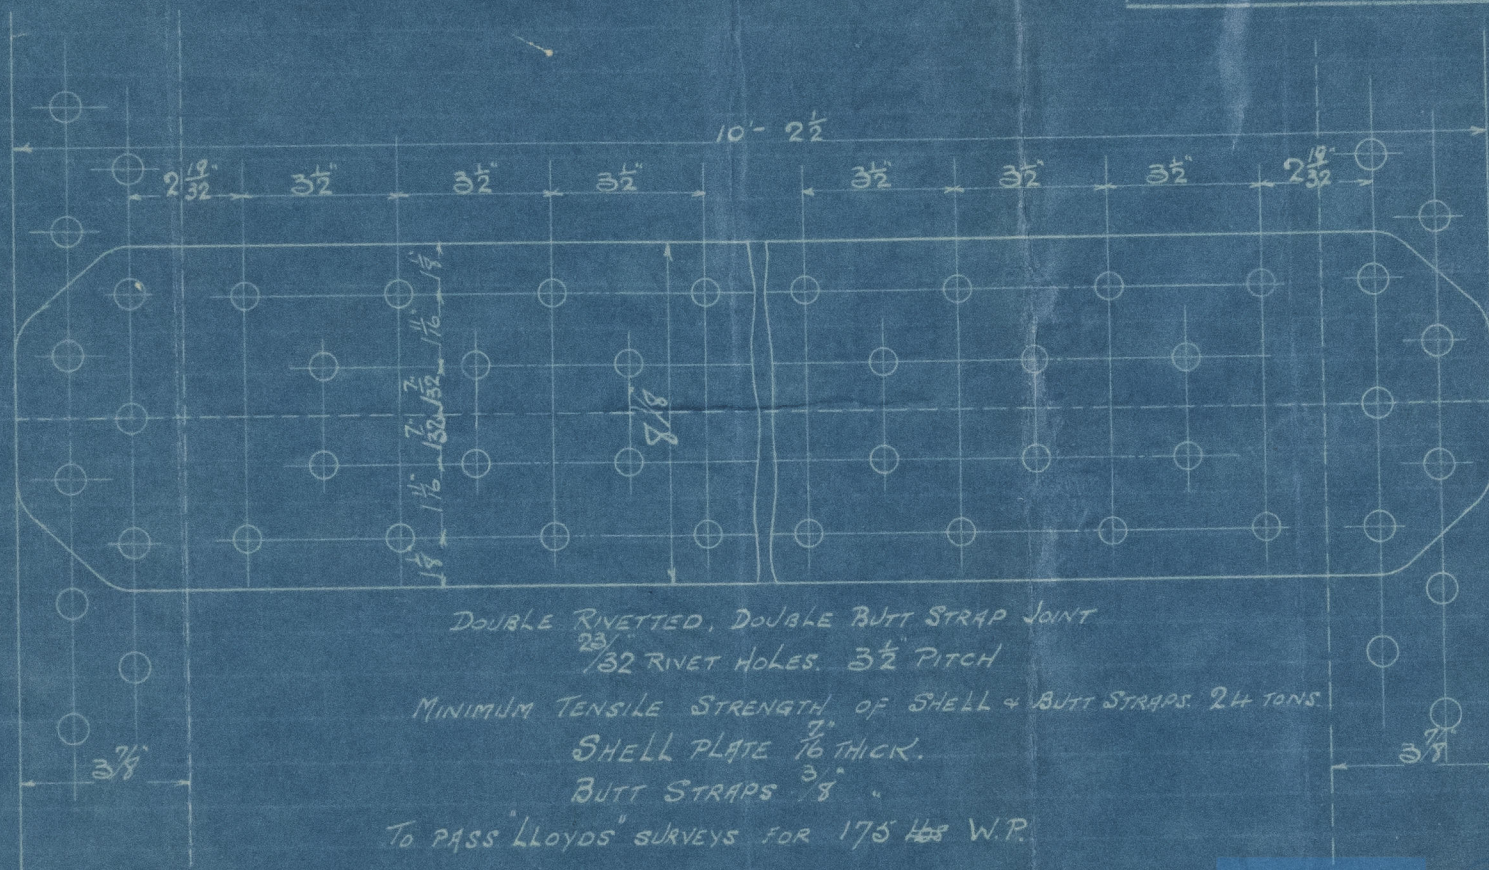 10'- 2 1/2
2 19/32" 3 1/2" 3 1/2" 3 1/2" 3 1/2" 3 1/2" 3 1/2" 2 19/32"
1 1/8"
1 11/16"
1 7/32"
1 7/32"
1 11/16"
1 1/8"
8 1/8"
DOUBLE RIVETTED, DOUBLE BUTT STRAP JOINT
23/32" RIVET HOLES. 3 1/2" PITCH
MINIMUM TENSILE STRENGTH OF SHELL & BUTT STRAPS. 24 TONS.
SHELL PLATE 7/16" THICK.
3 7/8" 3 7/8"
BUTT STRAPS 3/8" "
TO PASS "LLOYDS" SURVEYS FOR 175 lbs W.P.